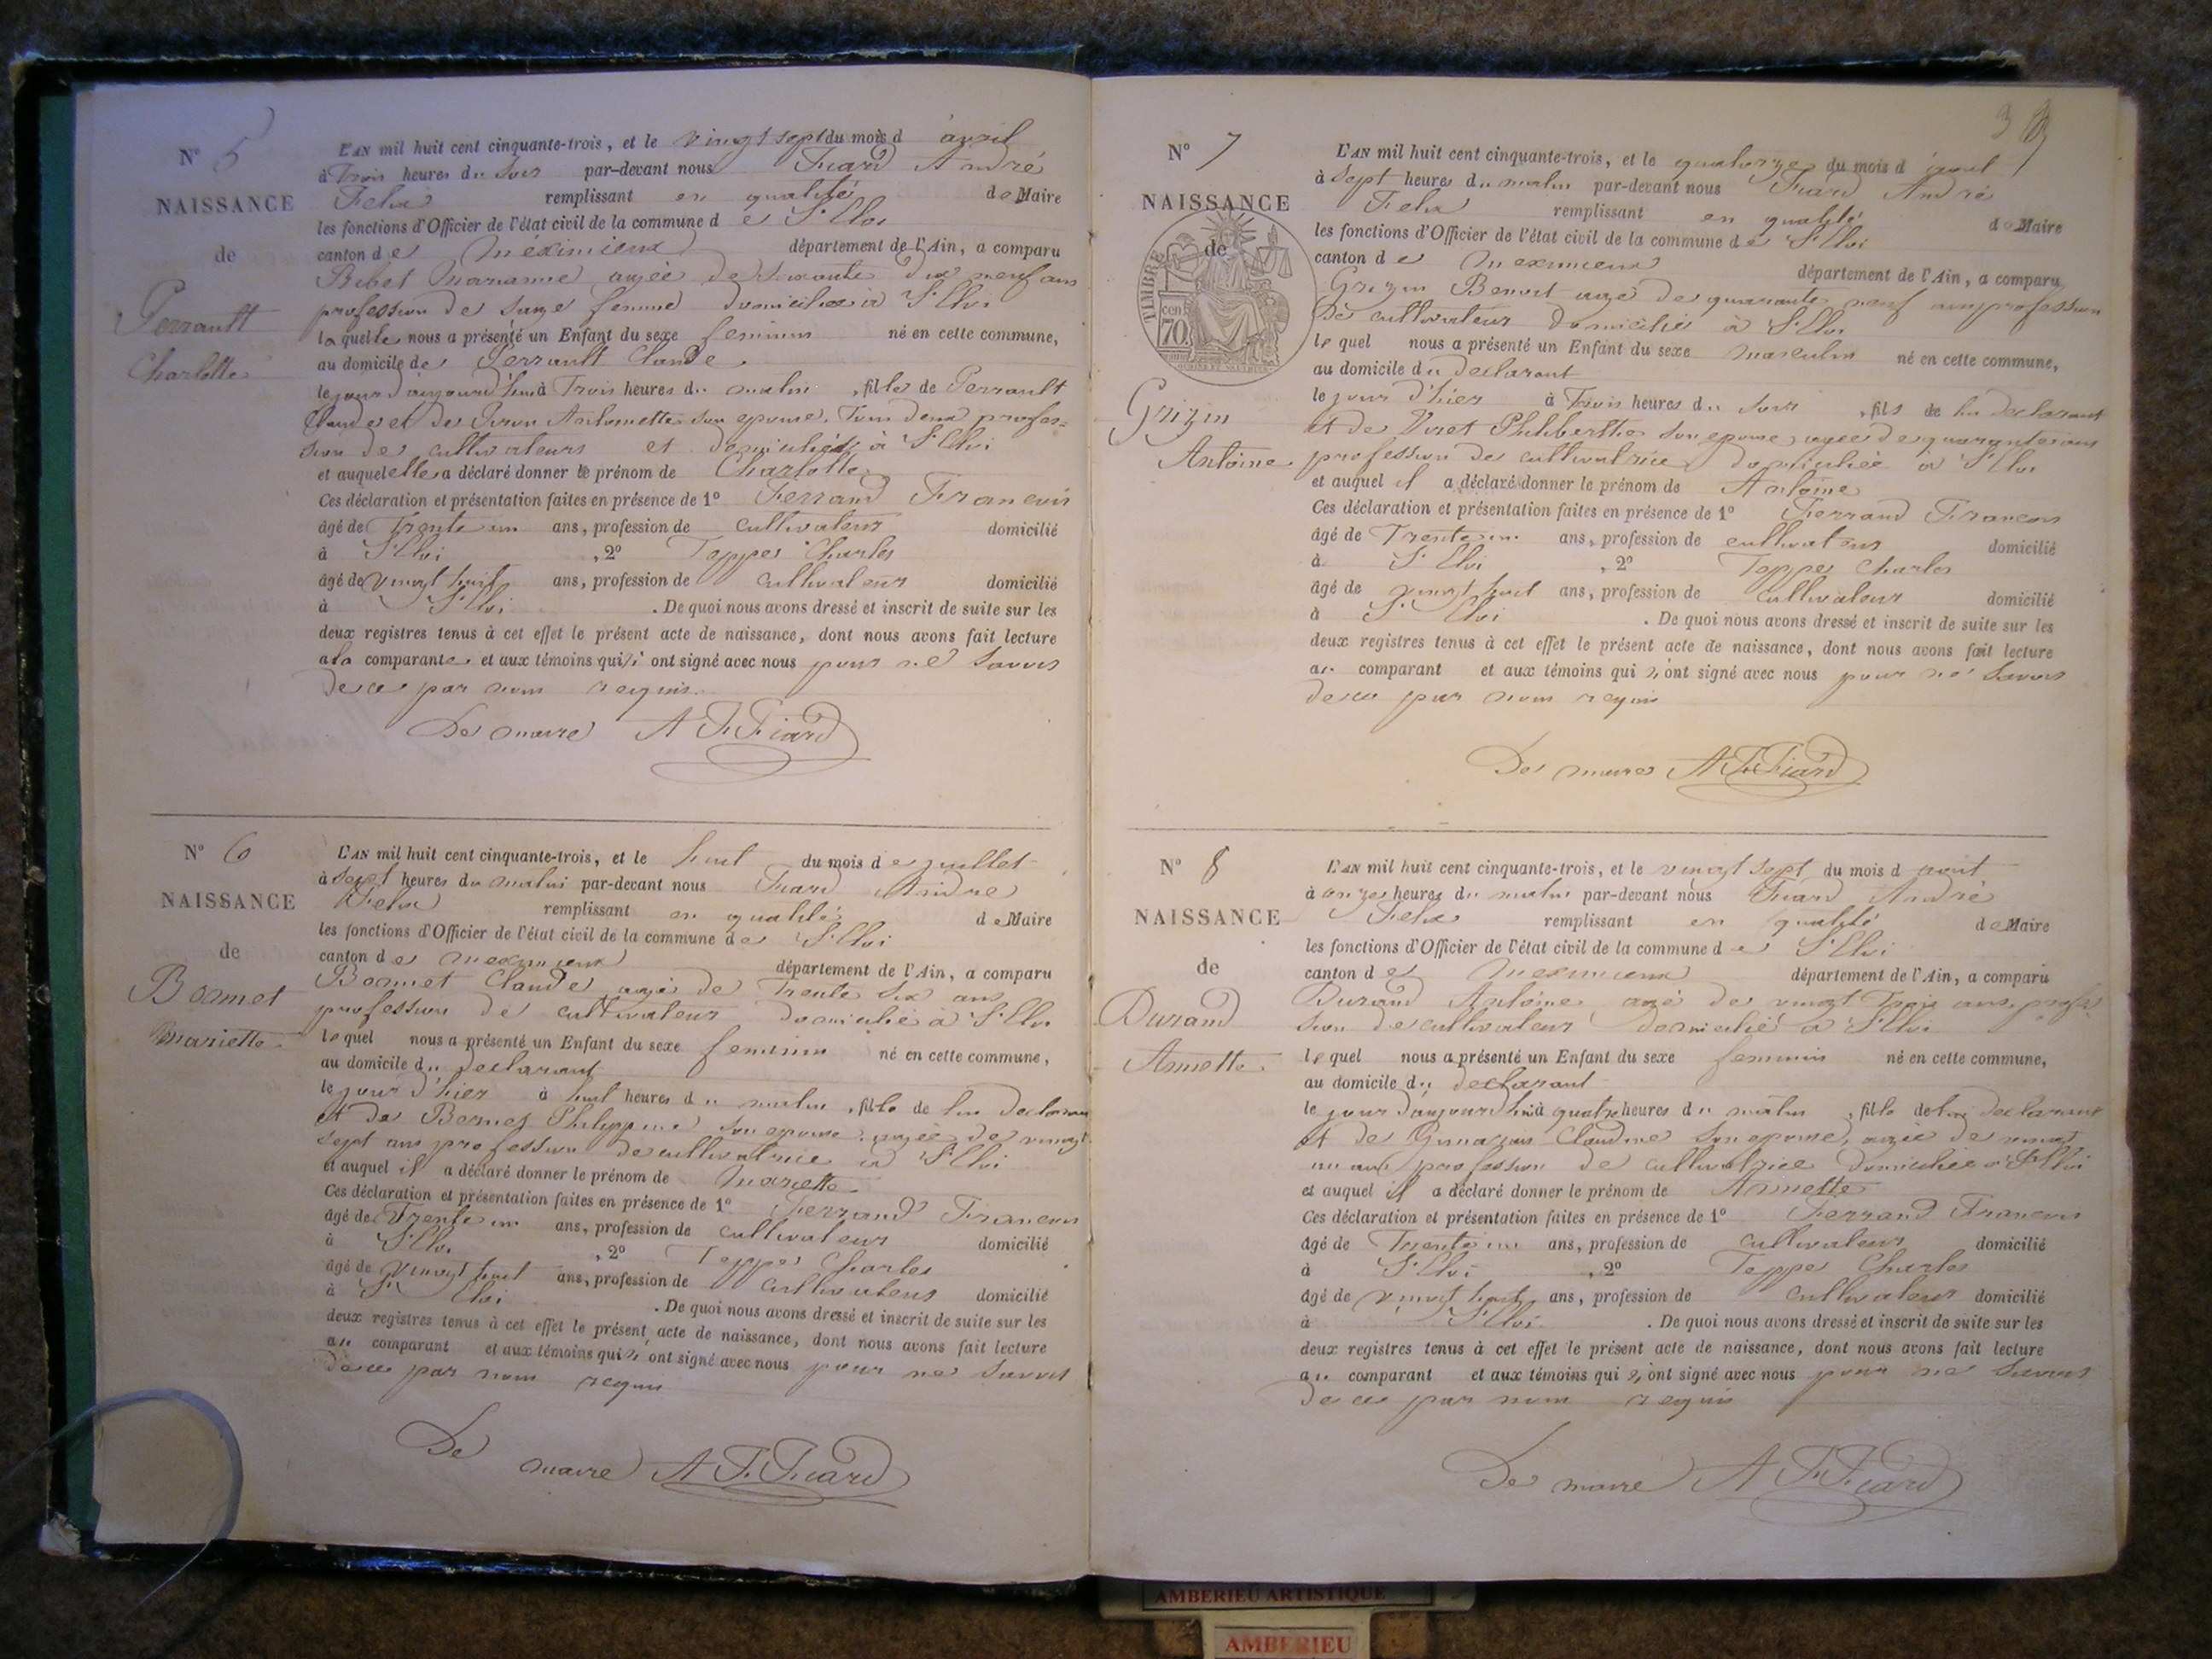 N° 5
NAISSANCE
de
Perrault
Charlotte
L'AN mil huit cent cinquante-trois, et le vingt sept du mois d avril
à Trois heures du soir par-devant nous Fiard André
Felix remplissant en qualité de Maire
les fonctions d'Officier de l'état civil de la commune d e St Eloi
canton d e Méximieux département de l'Ain, a comparu
Bibet Marianne agée de soixante dix neuf ans
profession de sage femme domiciliée à St Eloi
laquelle nous a présenté un Enfant du sexe feminin né en cette commune,
au domicile de Perrault Claude
le jour d'aujourd'hui à Trois heures du matin , fille de Perrault
Claude et de Antoinette son epouse, Tous deux profes=
sion de cultivateurs et domiciliés à St Eloi
et auquel elle a déclaré donner le prénom de Charlotte
Ces déclaration et présentation faites en présence de 1° Ferrand Francois
âgé de Trente un ans, profession de cultivateur domicilié
à St Eloi , 2° Teppe Charles
âgé de vingt huit ans, profession de cultivateur domicilié
à St Eloi . De quoi nous avons dressé et inscrit de suite sur les
deux registres tenus à cet effet le présent acte de naissance, dont nous avons fait lecture
a la comparante et aux témoins qui n'ont signé avec nous pour ne savoir
de ce par nous requis.
Le maire A F Fiard
N° 6
NAISSANCE
de
Bonnet
Mariette
L'AN mil huit cent cinquante-trois, et le huit du mois de juillet
à sept heures du matin par-devant nous Fiard André
Felix remplissant en qualité de Maire
les fonctions d'Officier de l'état civil de la commune de St Eloi
canton de Meximieux département de l'Ain, a comparu
Bonnet Claude agé de Trente six ans
profession de cultivateur domicilié à St Eloi
lequel nous a présenté un Enfant du sexe feminin né en cette commune,
au domicile du declarant
le jour d'hier à huit heures du matin , fille de lui declarant
et de Philippine son epouse, agée de vingt
sept ans profession de cultivatrice à St Eloi
et auquel il a déclaré donner le prénom de Mariette
Ces déclaration et présentation faites en présence de 1° Ferrand Francois
âgé de Trente un ans, profession de cultivateur domicilié
à St Eloi , 2° Teppe Charles
âgé de vingt huit ans, profession de cultivateur domicilié
à St Eloi . De quoi nous avons dressé et inscrit de suite sur les
deux registres tenus à cet effet le présent acte de naissance, dont nous avons fait lecture
au comparant et aux témoins qui n'ont signé avec nous pour ne savoir
de ce par nous requis
Le maire A F Fiard
3
N° 7
NAISSANCE
de
TIMBRE
70
cen
Grizin
Antoine
L'AN mil huit cent cinquante-trois, et le quatorze du mois d aout
à sept heures du matin par-devant nous Fiard André
Felix remplissant en qualité de Maire
les fonctions d'Officier de l'état civil de la commune de St Eloi
canton d e Meximieux département de l'Ain, a comparu
Grizin Benoit agé de quarante neuf ans profession
de cultivateur domicilié à St Eloi
lequel nous a présenté un Enfant du sexe masculin né en cette commune,
au domicile du declarant
le jour d'hier à Trois heures du soir , fils de lui declarant
et de Viret Philiberthe son epouse, agée de quarante ans
profession de cultivatrice domiciliée à St Eloi
et auquel il a déclaré donner le prénom de Antoine
Ces déclaration et présentation faites en présence de 1° Ferrand Francois
âgé de Trente un ans, profession de cultivateur domicilié
à St Eloi , 2° Teppe Charles
âgé de vingt huit ans, profession de cultivateur domicilié
à St Eloi . De quoi nous avons dressé et inscrit de suite sur les
deux registres tenus à cet effet le présent acte de naissance, dont nous avons fait lecture
au comparant et aux témoins qui n'ont signé avec nous pour ne savoir
de ce par nous requis
Le maire A F Fiard
N° 8
NAISSANCE
de
Durand
Annette
L'AN mil huit cent cinquante-trois, et le vingt sept du mois d aout
à onze heures du matin par-devant nous Fiard André
Felix remplissant en qualité de Maire
les fonctions d'Officier de l'état civil de la commune d e St Eloi
canton d e Meximieux département de l'Ain, a comparu
Durand Antoine, agé de vingt Trois ans, profes=
sion de cultivateur domicilié à St Eloi
lequel nous a présenté un Enfant du sexe feminin né en cette commune,
au domicile du declarant
le jour d'aujourd'hui à quatre heures du matin , fille de lui declarant
et de Claudine son epouse, agée de vingt
un ans profession de cultivatrice domiciliée à St Eloi
et auquel il a déclaré donner le prénom de Annette
Ces déclaration et présentation faites en présence de 1° Ferrand Francois
âgé de Trente un ans, profession de cultivateur domicilié
à St Eloi , 2° Teppe Charles
âgé de vingt huit ans, profession de cultivateur domicilié
à St Eloi . De quoi nous avons dressé et inscrit de suite sur les
deux registres tenus à cet effet le présent acte de naissance, dont nous avons fait lecture
au comparant et aux témoins qui n'ont signé avec nous pour ne savoir
de ce par nous requis
Le maire A F Fiard
AMBERIEU ARTISTIQUE
AMBERIEU